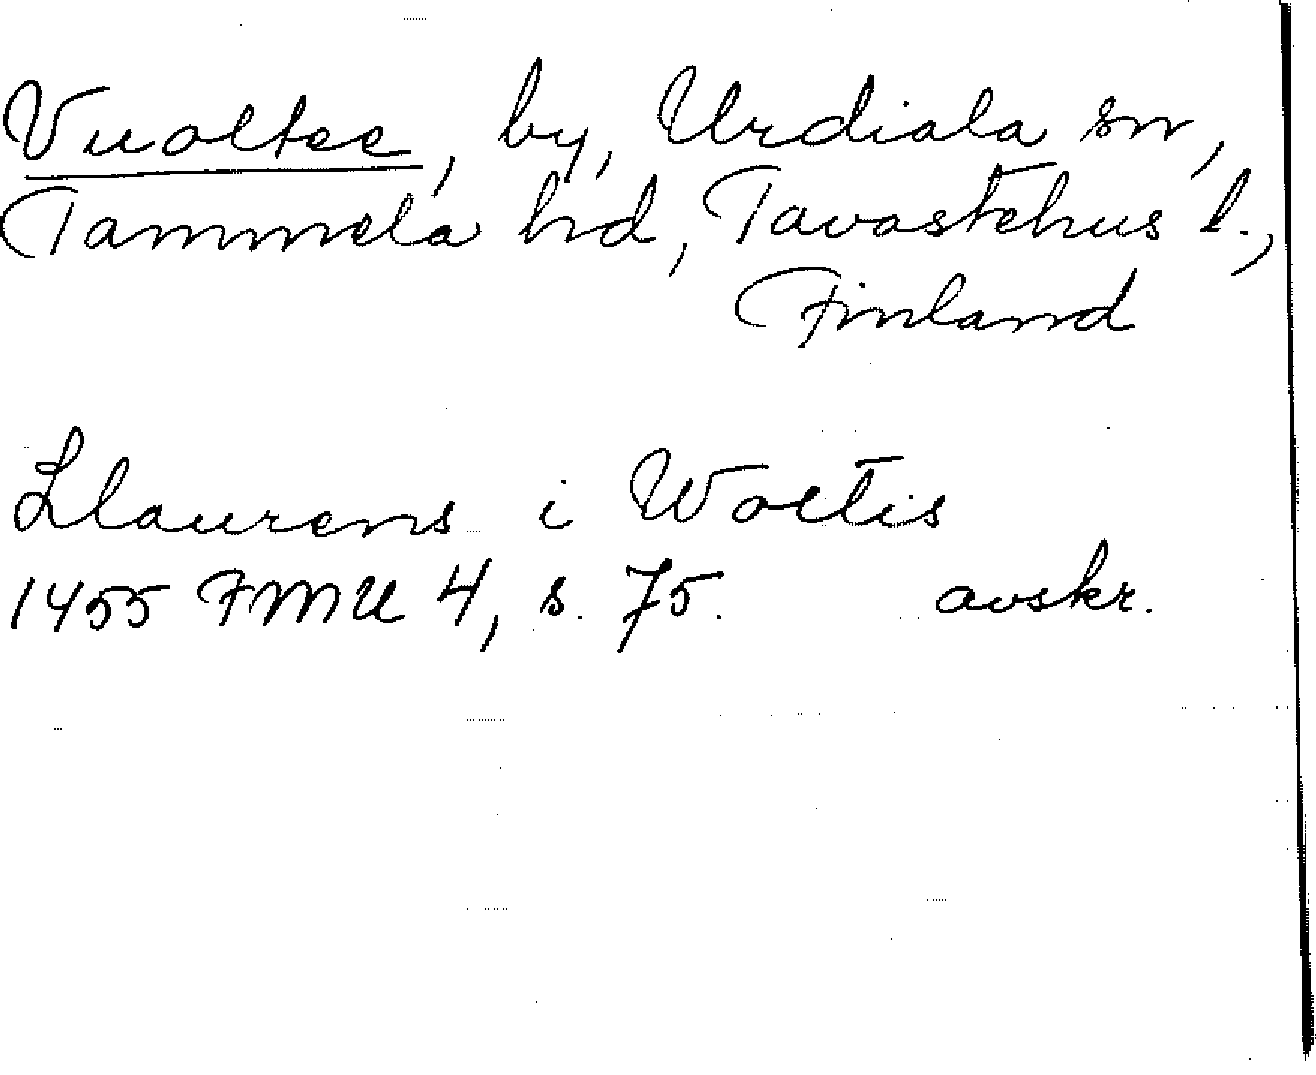 Vuoltee, by, Urdiala sn,
Tammela hd, Tavastehus l.,
Finland
Llaurens i Woltis
1455 FMU 4, s. 75. avskr.